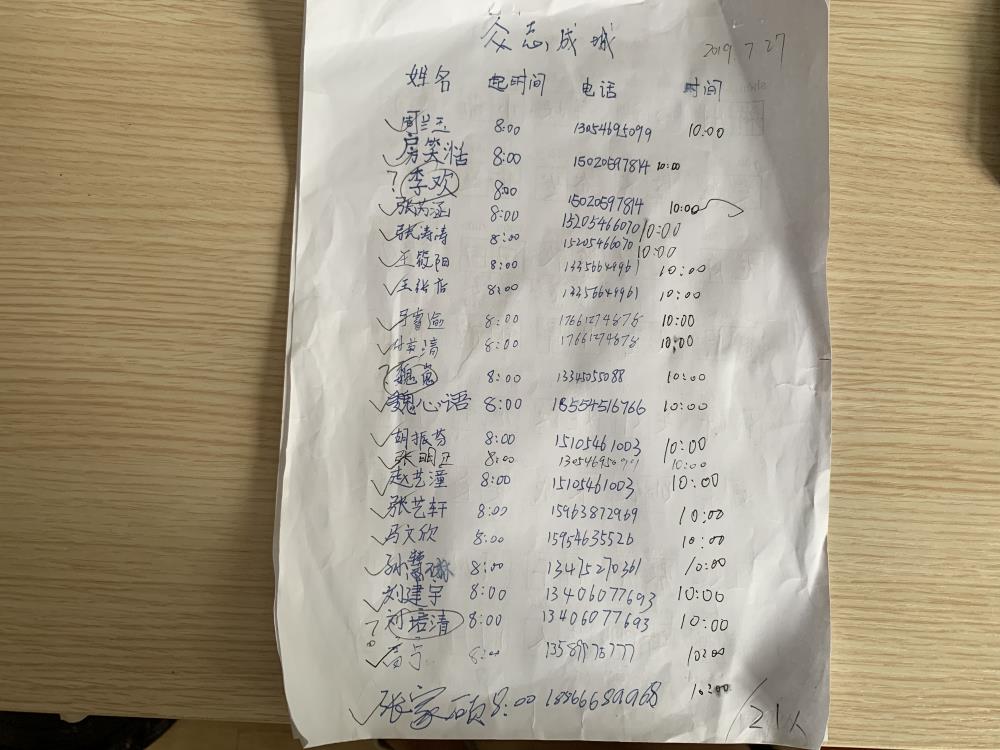 众志成城
2019 7 27
姓名 起时间 电话 时间
周兰玉 8:00 13054695099 10:00
房笑浩 8:00 15020597814 10:00
? 李欢 8:00 15020597814 10:00
张芮涵 8:00 15205466070 10:00
张涛涛 8:00 15205466070 10:00
王筱阳 8:00 13356644961 10:00
王 8:00 13356644961 10:00
于睿渝 8:00 17661274878 10:00
清 8:00 17661274878 10:00
? 魏嵬 8:00 13345055088 10:00
魏心语 8:00 18554516766 10:00
胡振芬 8:00 15105461003 10:00
张明卫 8:00 10:00
赵艺潼 8:00 15105461003 10:00
张艺轩 8:00 15963872969 10:00
马文欣 8:00 15954635526 10:00
孙 8:00 13475270361 10:00
刘建宇 8:00 13406077693 10:00
? 刘培清 8:00 13406077693 10:00
高 8:00 10:00
张家硕 8:00 18866689968 10:00
21人